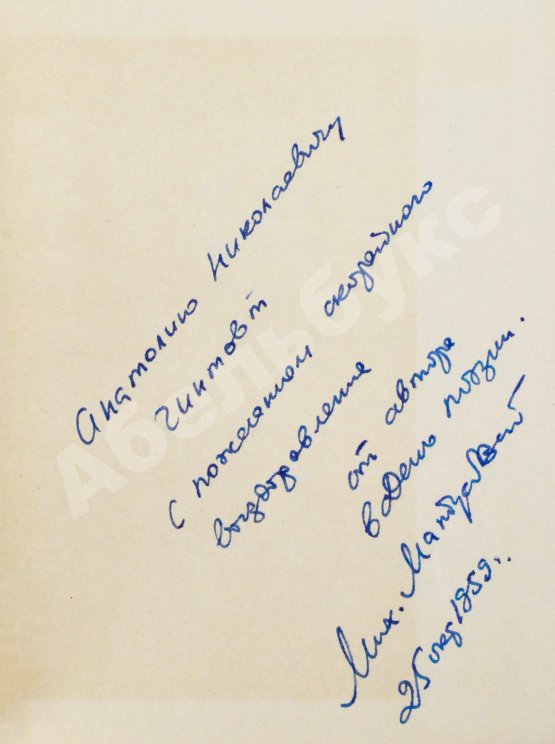 Анатолию Николаевичу
Гинтовт
с пожеланием скорейшего
выздоровления
от автора
в День поэзии.
Мих. Матусовский
25 окт. 1959г.
Абельбукс